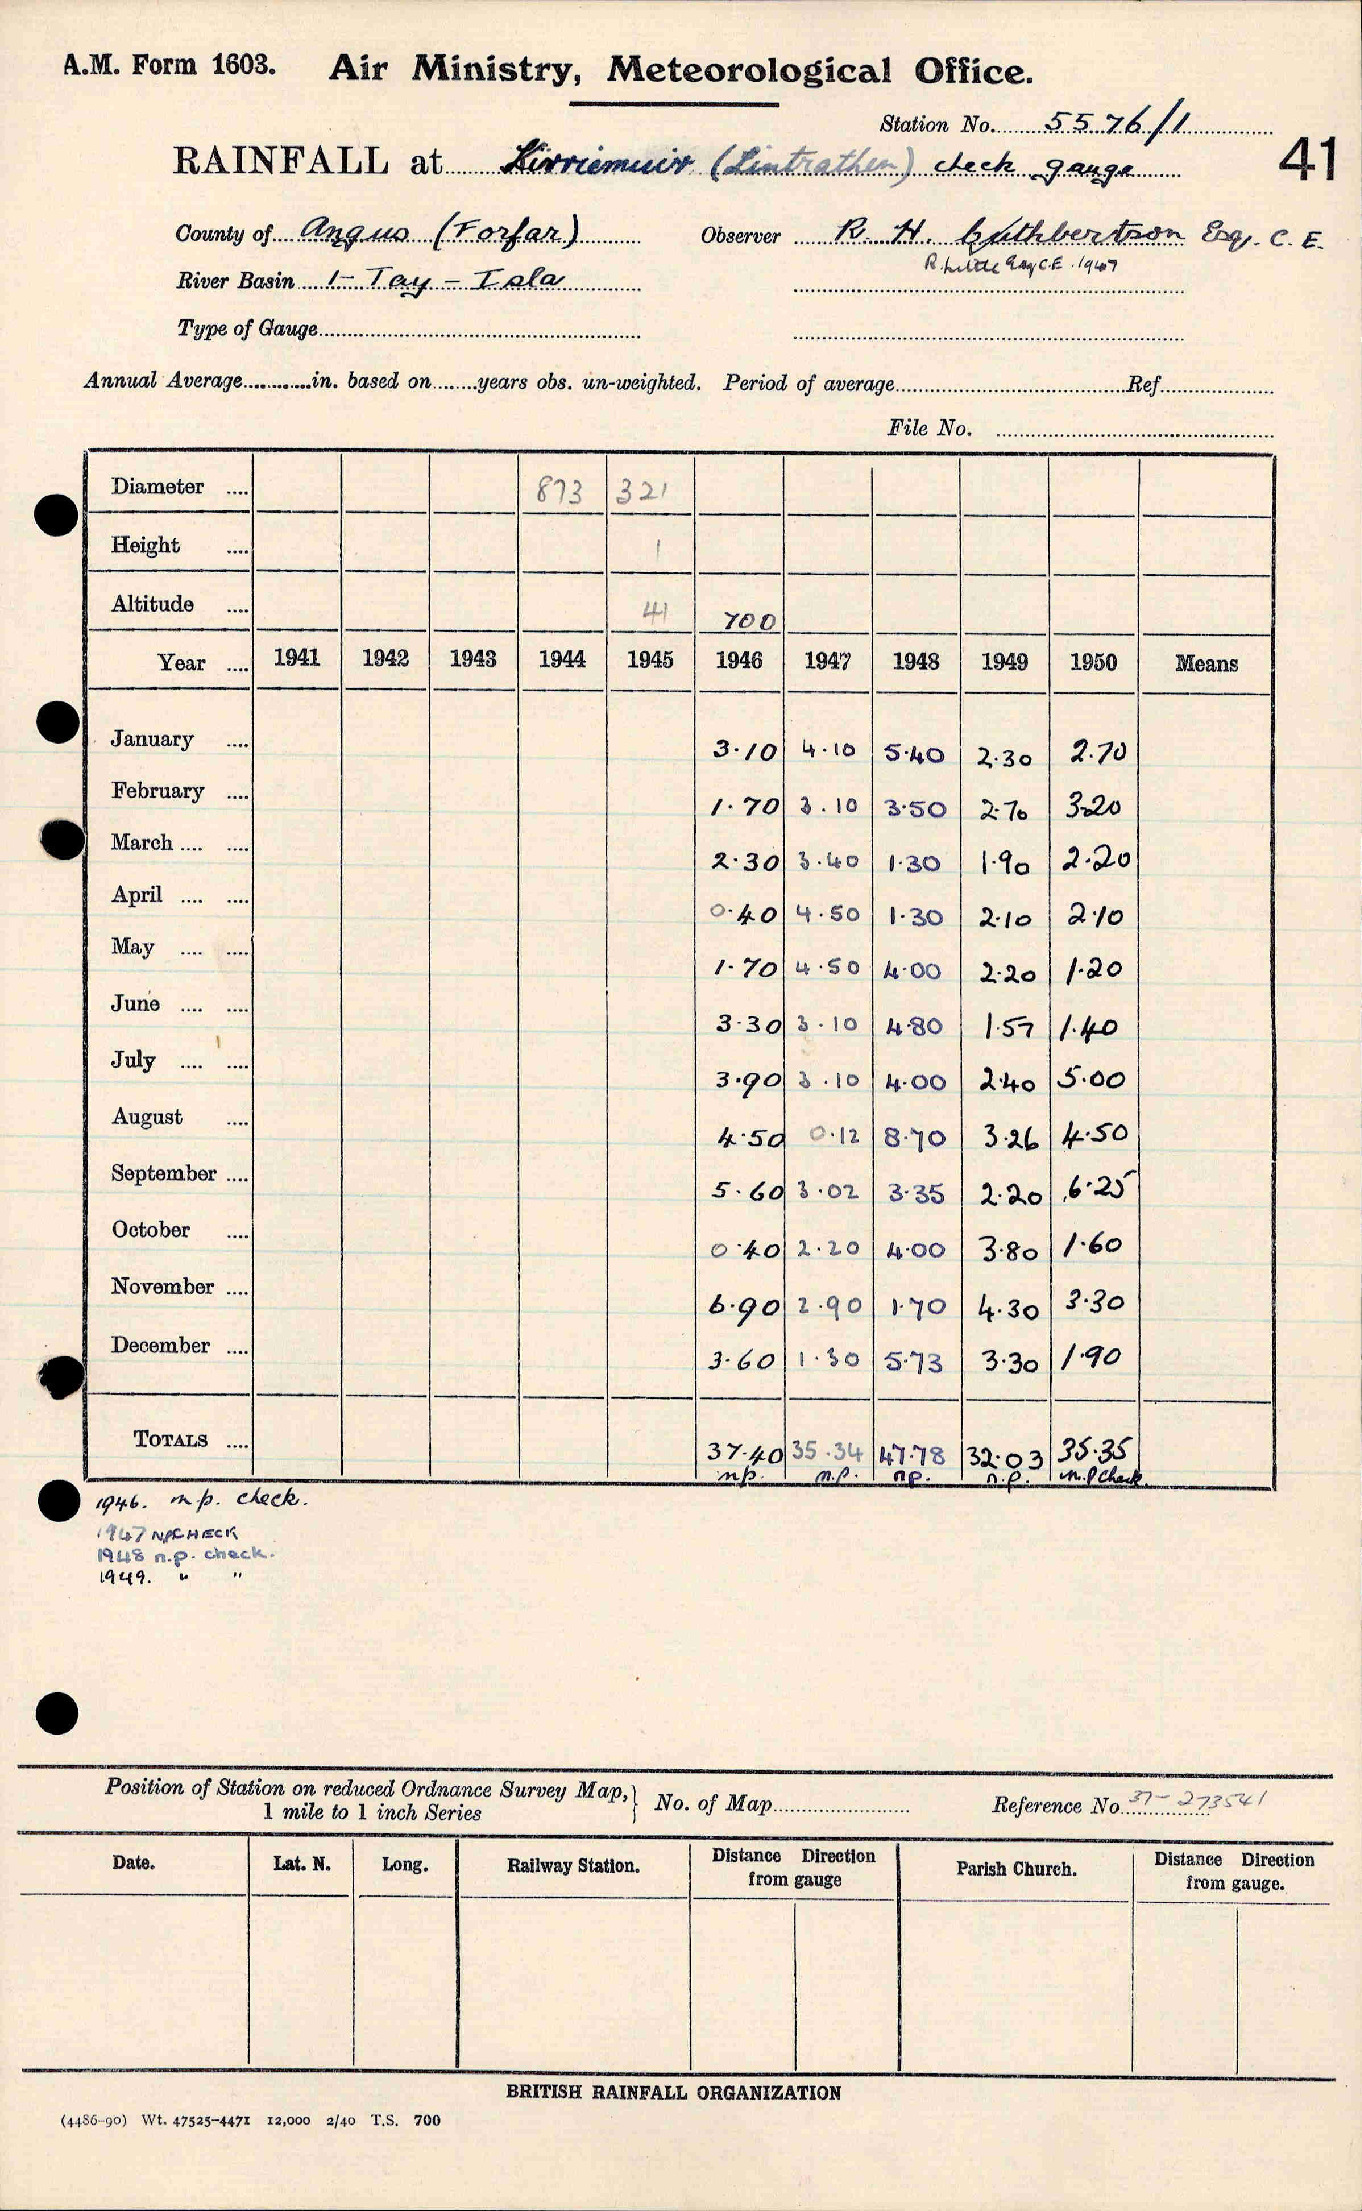 A.M. Form 1603. Air Ministry, Meteorological Office.
Station No. 5576/1
41
RAINFALL at Kirriemuir (Lintrathen) check gauge
County of Angus (Forfar) Observer R. H. Cuthbertson Esq. C. E.
R. Little Esq C.E. 1947
River Basin 1- Tay - Isla
Type of Gauge
Annual Average in. based on years obs. un-weighted. Period of average Ref.
File No.
Diameter 873 321
Height 1
Altitude 41 700
Year 1941 1942 1943 1944 1945 1946 1947 1948 1949 1950 Means
January 3.10 4.10 5.40 2.30 2.70
February 1.70 3.10 3.50 2.70 3.20
March 2.30 3.40 1.30 1.90 2.20
April 0.40 4.50 1.30 2.10 2.10
May 1.70 4.50 4.00 2.20 1.20
June 3.30 3.10 4.80 1.57 1.40
July 3.90 3.10 4.00 2.40 5.00
August 4.50 0.12 8.70 3.26 4.50
September 5.60 3.02 3.35 2.20 6.25
October 0.40 2.20 4.00 3.80 1.60
November 6.90 2.90 1.70 4.30 3.30
December 3.60 1.30 5.73 3.30 1.90
TOTALS 37.40 35.34 47.78 32.03 35.35
n.p. n.p. n.p. n.p. n.p check.
1946. n.p. check.
1947 NPCHECK
1948 n.p. check.
1949. " "
Position of Station on reduced Ordnance Survey Map, } No. of Map Reference No 37- 273541
1 mile to 1 inch Series
Date. Lat. N. Long. Railway Station. Distance Direction from gauge Parish Church. Distance Direction from gauge.
BRITISH RAINFALL ORGANIZATION
(4486-90) Wt. 47525-4471 12,000 2/40 T.S. 700